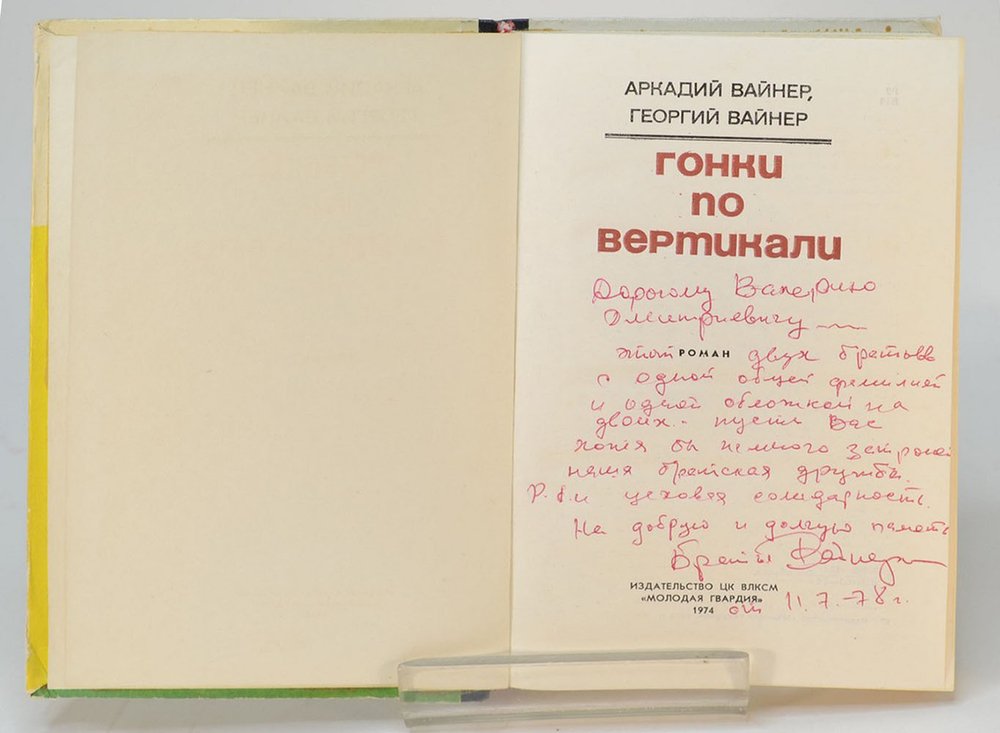 АРКАДИЙ ВАЙНЕР,
ГЕОРГИЙ ВАЙНЕР
ГОНКИ
ПО
ВЕРТИКАЛИ
Дорогому Валерию
Дмитриевичу
этот РОМАН двух братьев
с одной общей фамилией
и одной обложкой на
двоих - пусть Вас
хотя бы немного затронет
наша братская дружба.
P.S. и цеховая солидарность.
На добрую и долгую память
Братья Вайнер
ИЗДАТЕЛЬСТВО ЦК ВЛКСМ
«МОЛОДАЯ ГВАРДИЯ»
1974
11.7.-78 г.